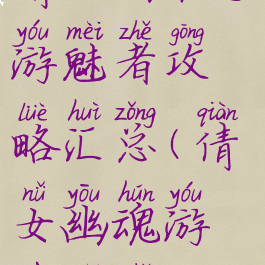 yóu mèi zhě gōng
游魅者攻
lüè huì zǒng qiàn
略汇总(倩
nǚ yōu hún yóu
女幽魂游